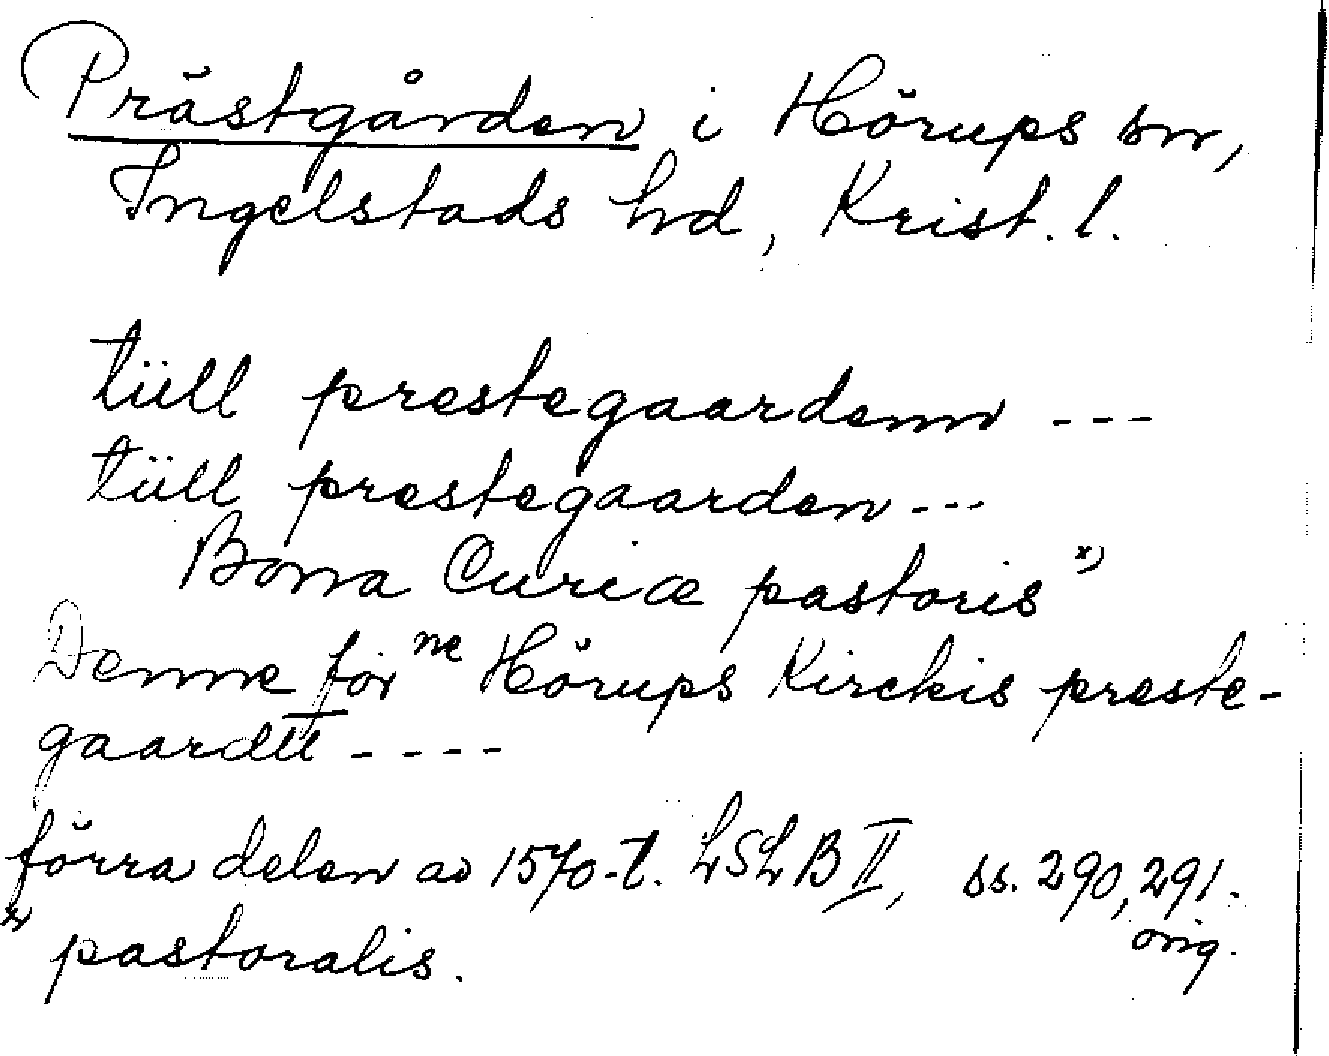 Prästgården i Hörups sn,
Ingelstads hd, Krist. l.
tüll prestegaardenn ---
tüll prestegaarden ---
Bona Curiæ pastoris x)
Denne forne Hörups Kirckis preste-
gaardtt ----
förra delen av 1570-t. LSLB II, ss. 290, 291.
orig.
x) pastoralis.